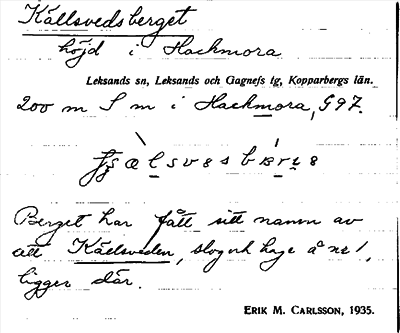 Källsvedsberget
höjd i Hackmora
Leksands sn, Leksands och Gagnefs tg, Kopparbergs län.
200 m S m i Hackmora, G97.
Berget har fått sitt namn av
att Källsveden, slog och hage å nr 1,
ligger där.
ERIK M. CARLSSON, 1935.